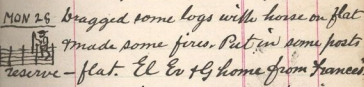 MON 26 Dragged some logs with horse on flat
made some fires. Put in some posts
reserve - flat. El Ev & G home from Frances